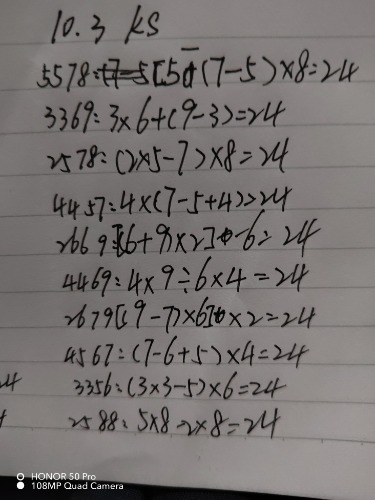 10.3 KS
5578:[5-(7-5)]×8=24
3369:3×6+(9-3)=24
2578:(2×5-7)×8=24
4457:4×(7-5+4)=24
2669:[(6+9)×2]-6=24
4469:4×9÷6×4=24
2679[(9-7)×6]×2=24
4567:(7-6+5)×4=24
3356:(3×3-5)×6=24
2588:5×8-2×8=24
24
HONOR 50 Pro
108MP Quad Camera